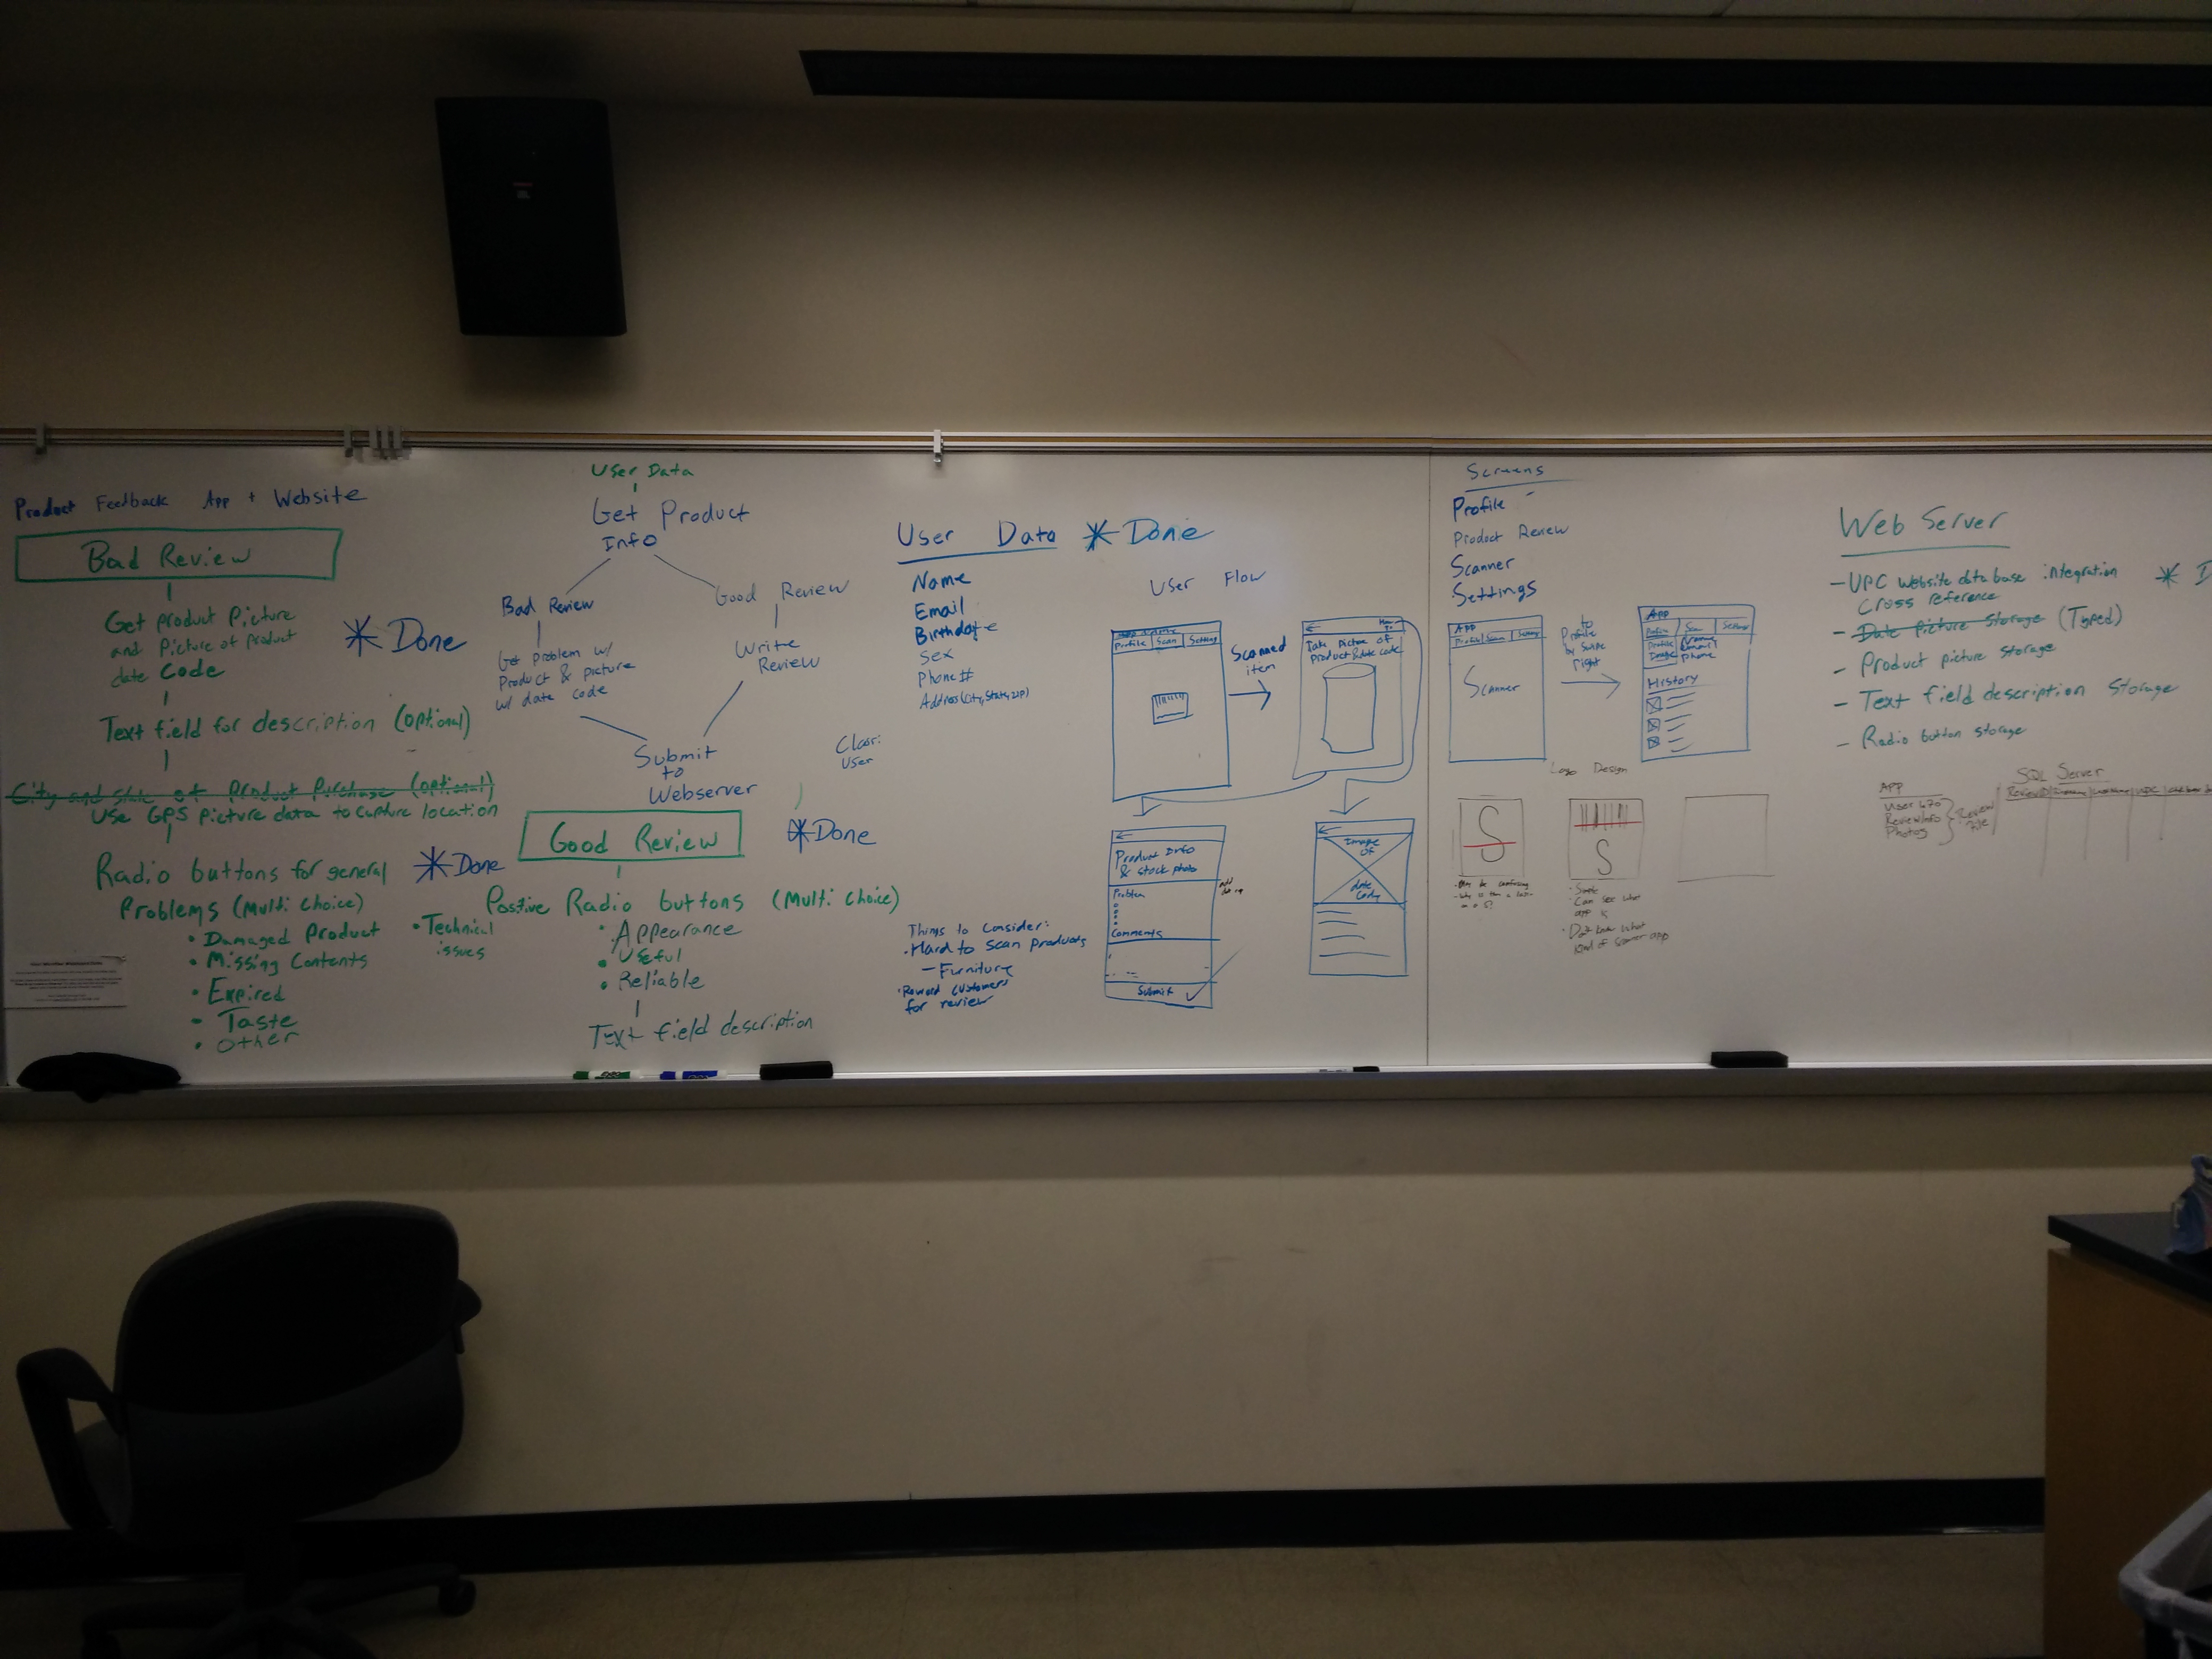 Product Feedback App + Website
Bad Review
Get product Picture
and Picture of product
date Code
* Done
Text field for description (optional)
City and state of Product Purchase (optional)
Use GPS picture data to capture location
Radio buttons for general
Problems (Multi Choice)
* Done
• Damaged Product
• Missing Contents
• Expired
• Taste
• Other
• Technical
issues
User Data
Get Product
Info
Bad Review
Get Problem w/
Product & picture
w/ date code
Good Review
Write
Review
Submit
to
Webserver
Good Review
* Done
Positive Radio buttons (Multi Choice)
• Appearance
• Useful
• Reliable
Text field description
User
User Data * Done
Name
Email
Birthdate
Sex
Phone #
Address (City, State, zip)
Things to Consider:
• Hard to scan products
– Furniture
• Reward customers
for review
User Flow
Profile Scan Settings
Scanned
item
Take Picture of
product & date code
Product Info
& stock photo
Problem
Comments
Submit
Image
of
date
Code
Screens
Profile
Product Review
Scanner
Settings
APP
Profile Scan Settings
Scanner
to
Profile
by Swipe
right
APP
Profile Scan Settings
Profile
Image
Name
Email
Phone
History
Logo Design
S
S
• Simple
• Can see what
app is
• Don't know what
kind of scanner app
Web Server
– UPC Website database integration
Cross reference
* D
– Date picture storage (Typed)
– Product picture storage
– Text field description Storage
– Radio button storage
APP
User Info
Review Info
Photos
Review
File
SQL Server
ReviewID
UPC